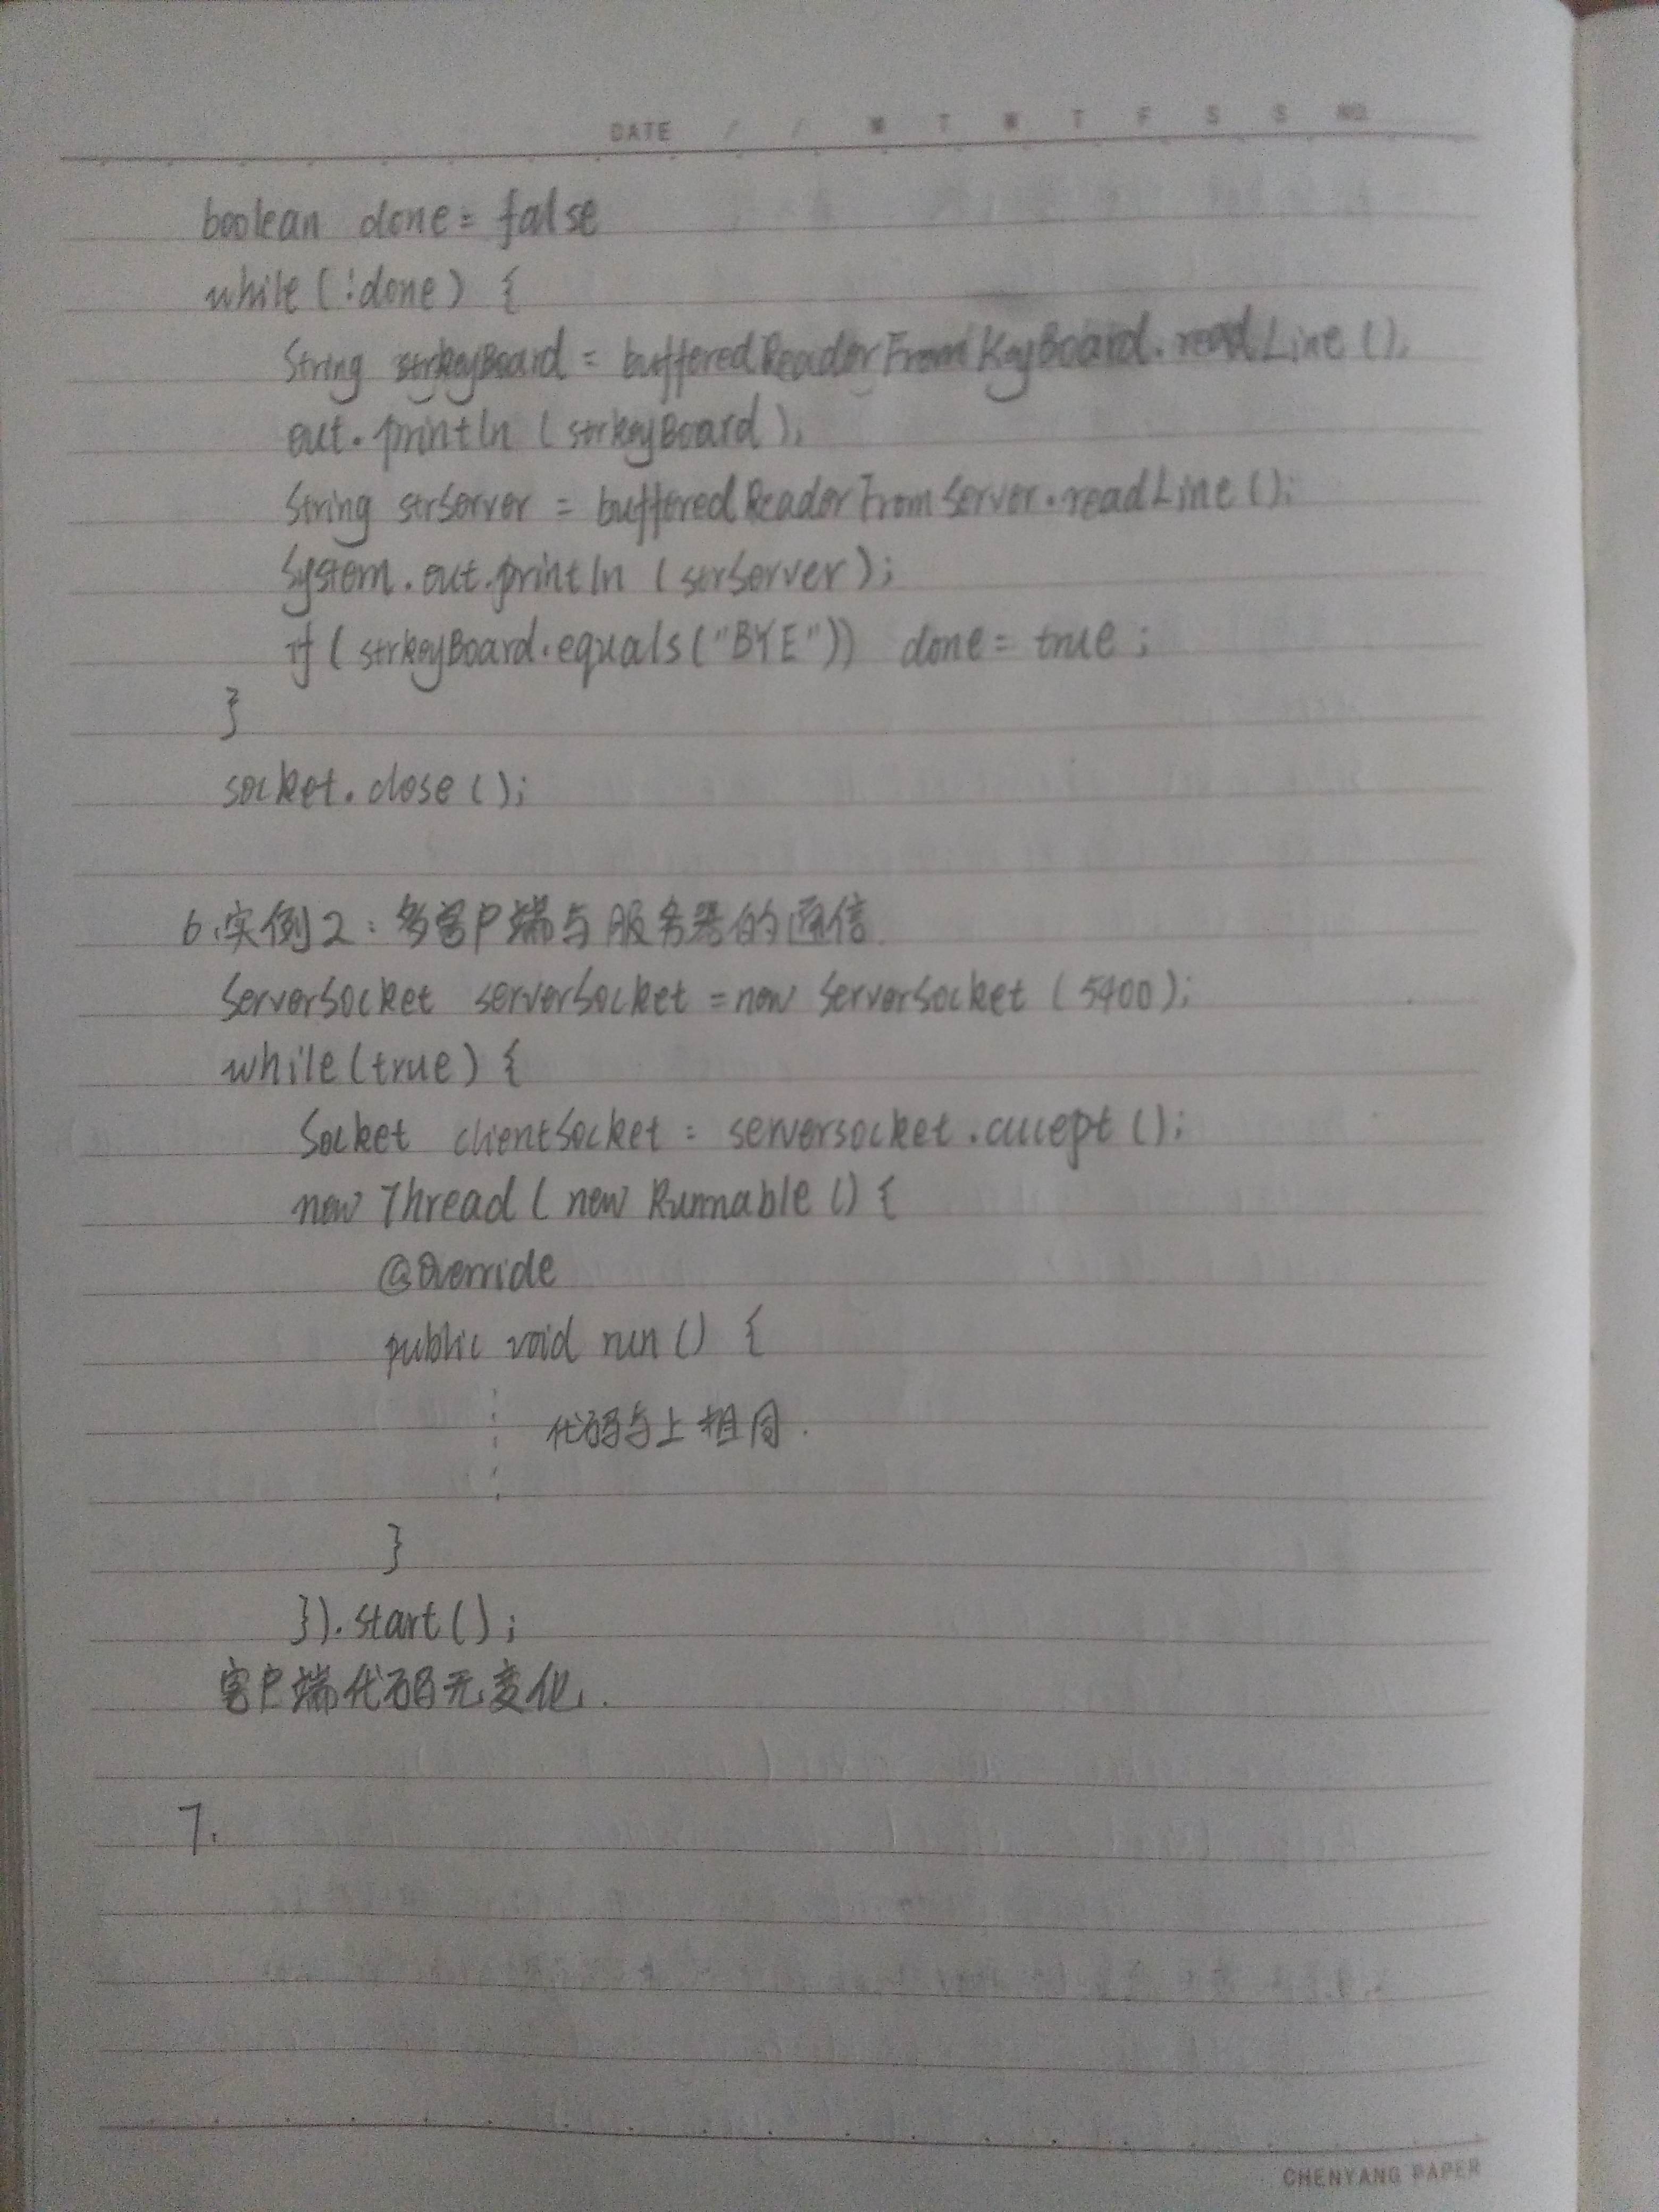 DATE / / M T W T F S S NO.
boolean done = false
while (!done) {
String strkeyBoard = bufferedReaderFromKeyBoard.readLine();
out.println (strkeyBoard);
String strServer = bufferedReaderFromServer.readLine();
System.out.println (strServer);
if (strkeyBoard.equals("BYE")) done = true;
}
socket.close();
6.实例2:多客户端与服务器的通信
ServerSocket serverSocket = new ServerSocket (5400);
while(true) {
Socket clientSocket = serversocket.accept();
new Thread ( new Runnable () {
@Override
public void run () {
代码与上相同.
}
}).start();
客户端代码无变化.
7.
CHENYANG PAPER